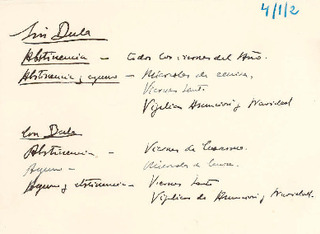 4/1/2
Sin Bula
Abstinencia — todos los viernes del Año.
Abstinencia y ayuno — Miércoles de ceniza,
Viernes Santo
Vigilias Asunción y Navidad
Con Bula
Abstinencia — Viernes de Cuaresma.
Ayuno — Miércoles de Ceniza.
Ayuno y abstinencia — Viernes Santo
Vigilias de Asunción y Navidad.